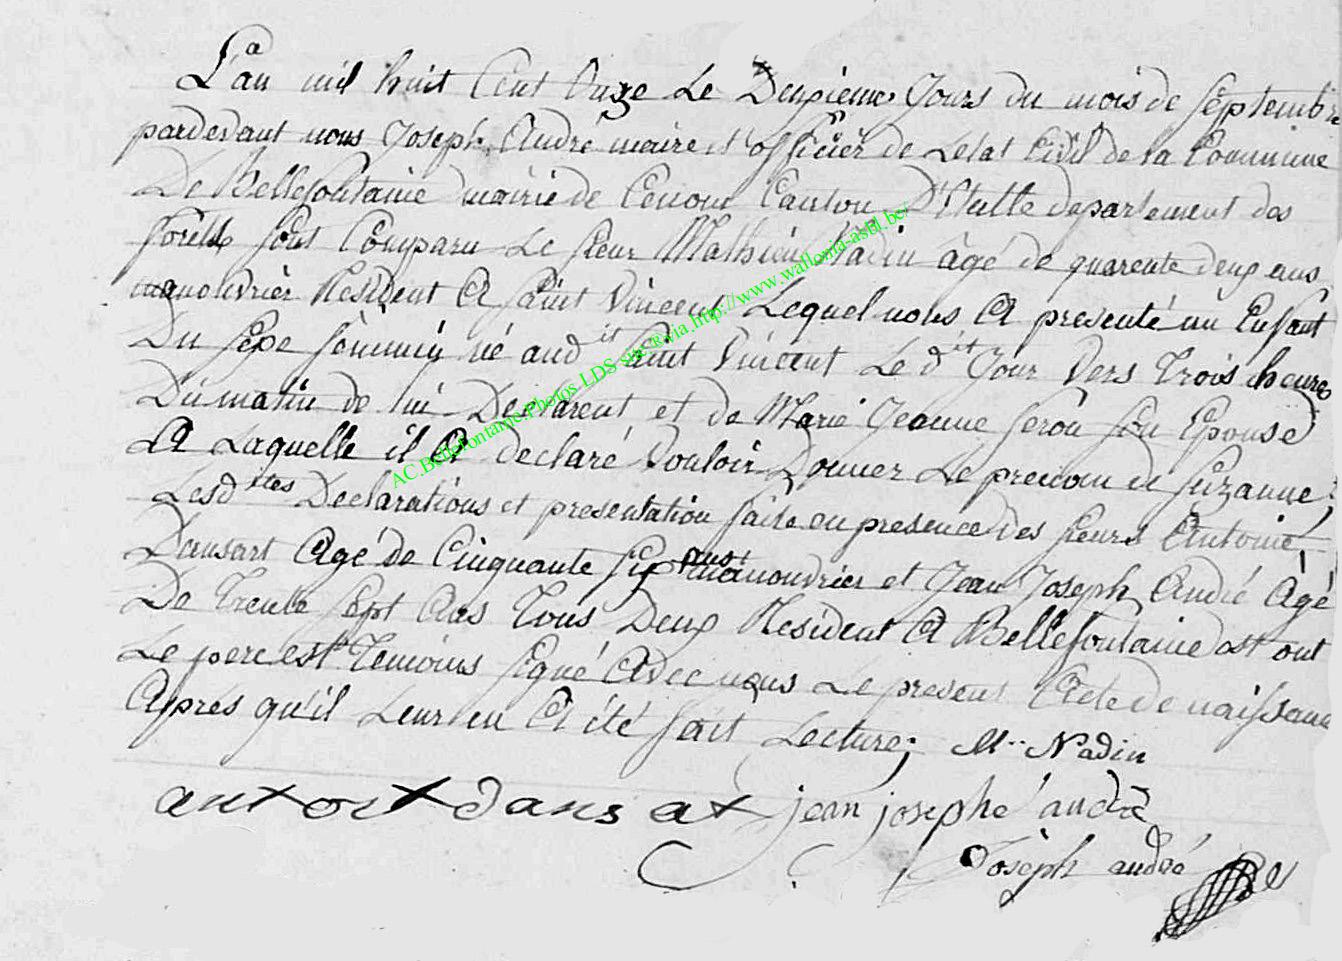 L'an mil huit Cent Onze Le Deuxieme Jours du mois de septembre
pardevant nous Joseph André maire et officier de Letat Civil de la Commune
De Bellefontaine mairie de Canton D'Etalle departement des
forêts sont Comparu Le sieur Mathieu Nadin âgé de quarente deux ans
manouvrier Résident A saint Vincent Lequel nous A presenté un Enfant
Du sexe féminin né aud it saint Vincent Le d it Jour Vers Trois heures
Du matin de lui Declarent et de Marie Jeanne son Epouse
A Laquelle il A declaré Vouloir Donner Le prenom de Suzanne;
Lesd ites Declarations et presentation faite en presence Des sieurs Antoine
Dansart Agé de Cinquante six ans manouvrier et Jean Joseph André Agé
De Trente sept Ans Tous Deux Résident A Bellefontaine et ont
Le pere est Temoins signé Avec nous Le present Acte de naissance
Après qu'il Leur en A été fait Lecture; M.. Nadin
dans at jean josephe andré
Joseph andré
AC.Bellefontaine.Photos LDS via http://www.wallonia-asbl.be/